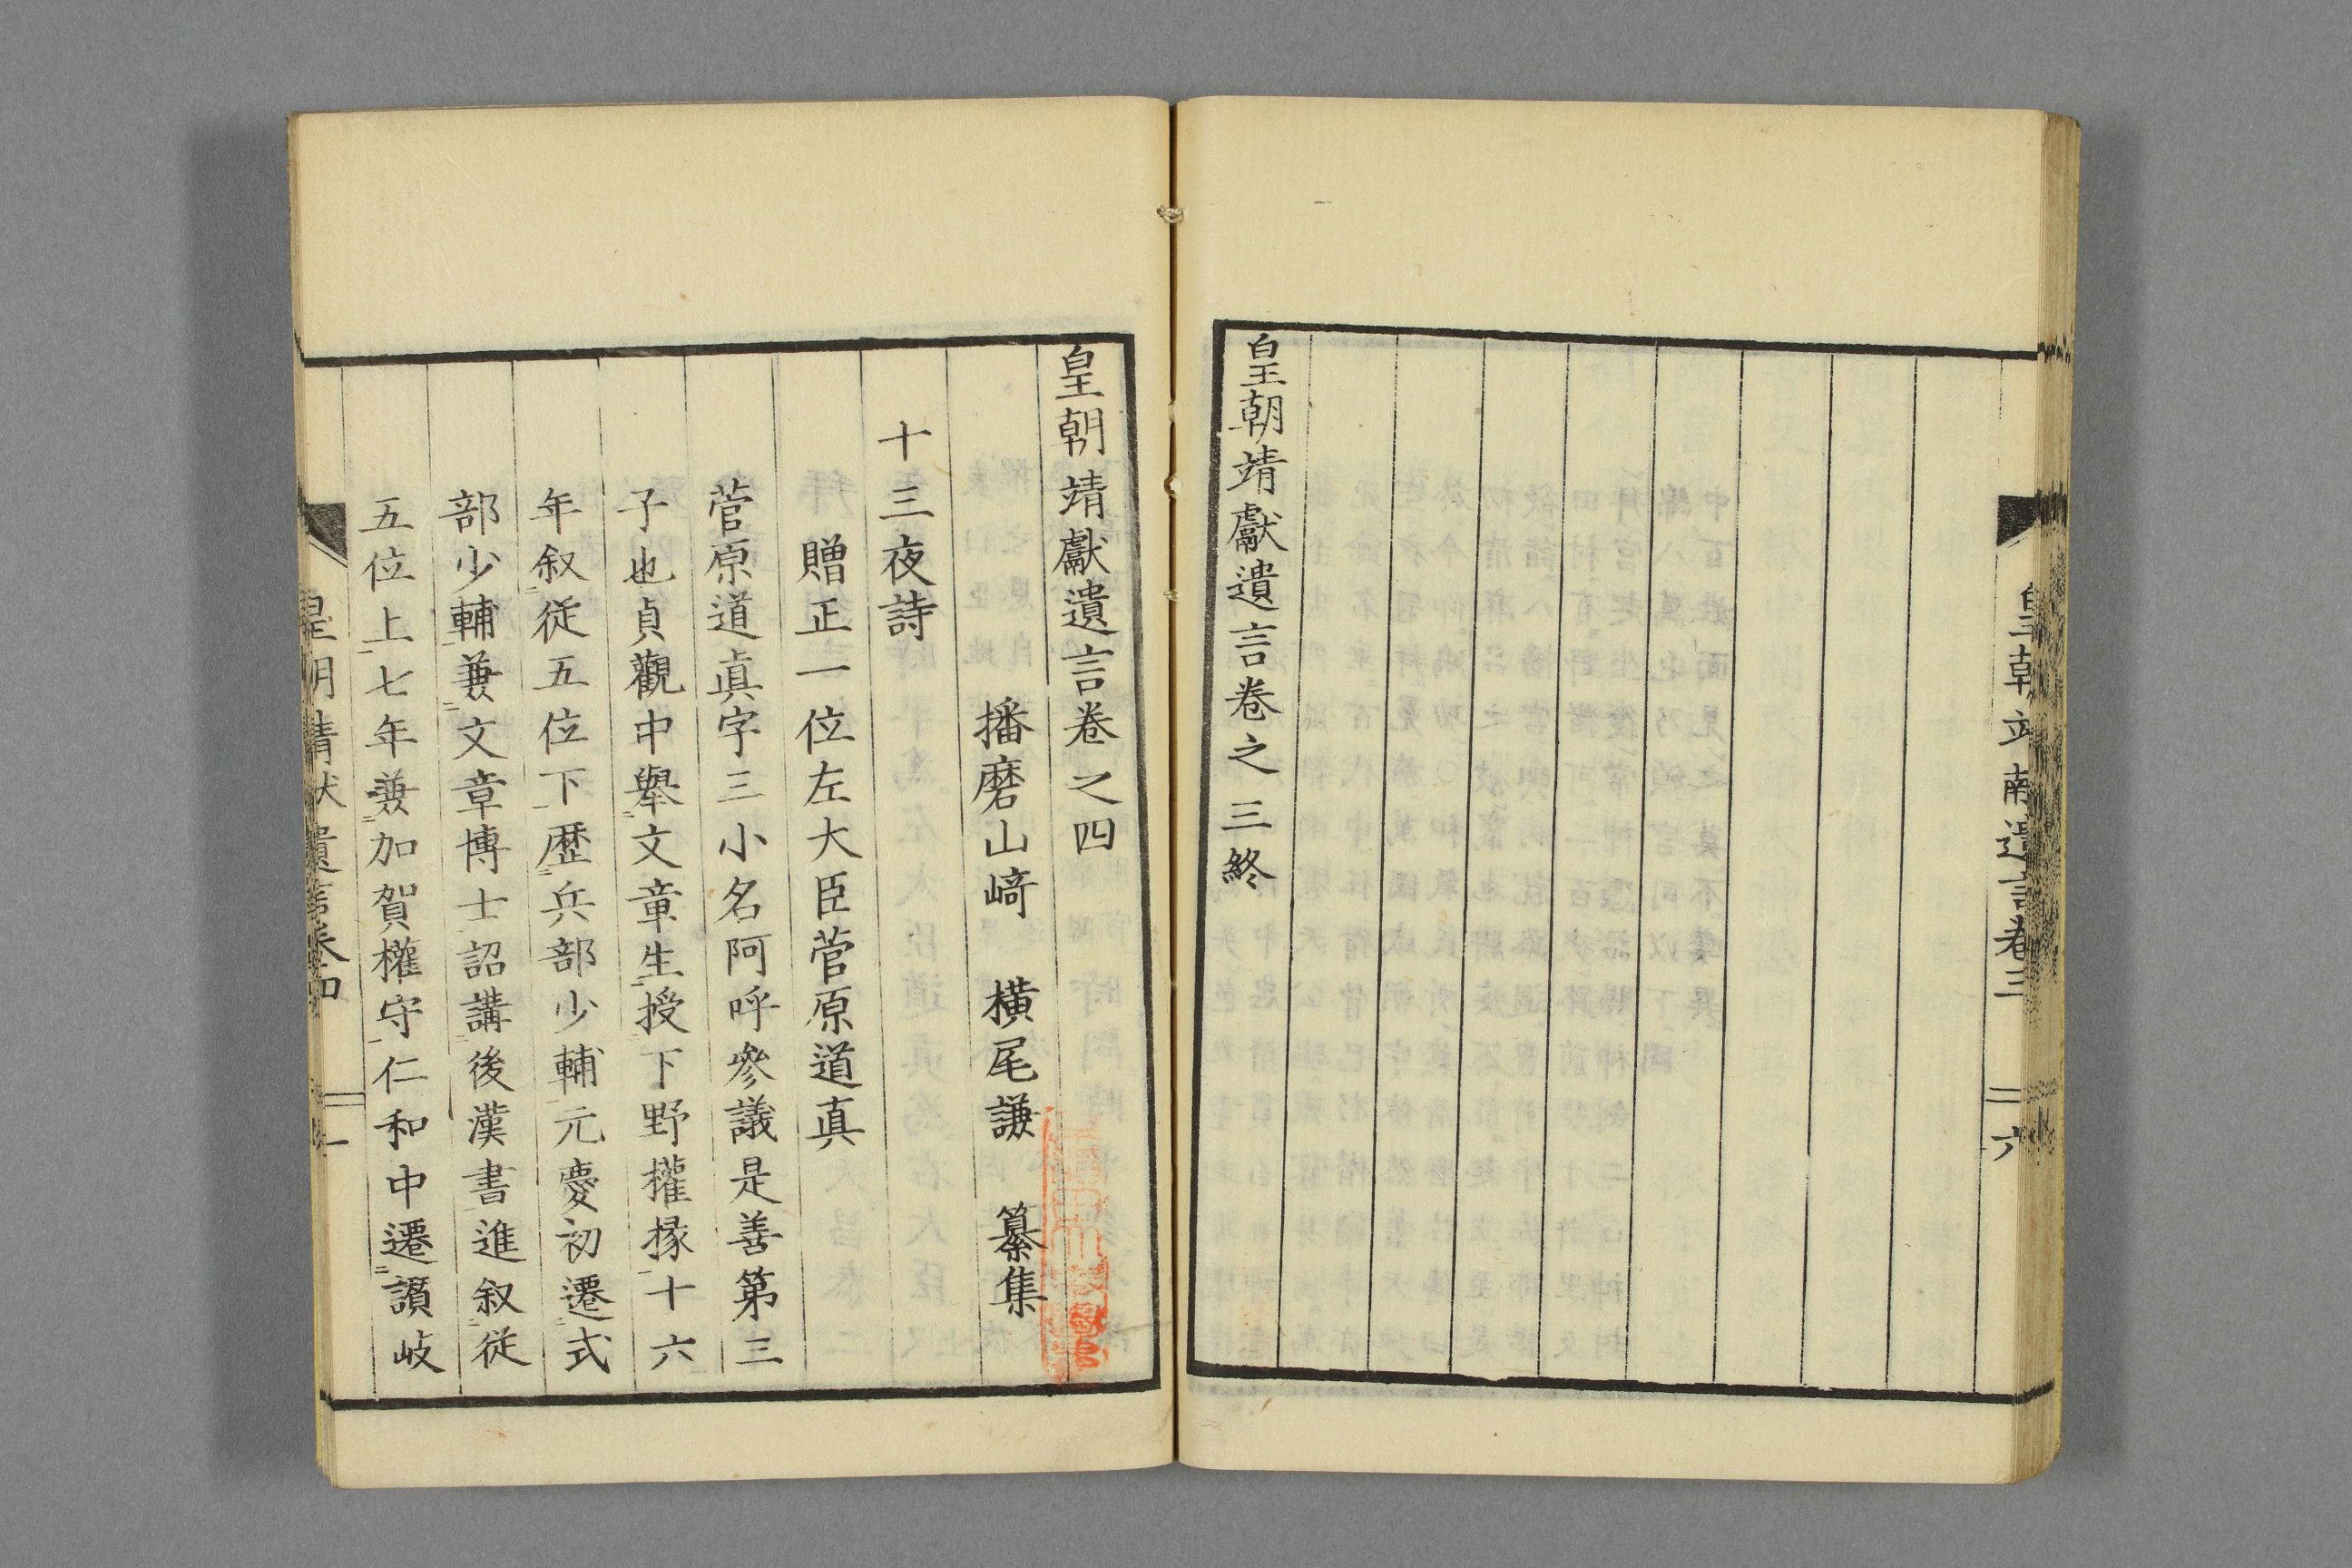 皇朝靖獻遺言卷三
六
皇朝靖獻遺言卷之三終
皇朝靖獻遺言卷之四
播磨山﨑 橫尾謙 纂集
十三夜詩
贈正一位左大臣菅原道真
菅原道眞字三小名阿呼參議是善第三
子也貞觀中舉文章生授下野權掾十六
年叙從五位下歷兵部少輔元慶初遷式
部少輔兼文章博士詔講後漢書進叙從
五位上七年兼加賀權守仁和中遷讃岐
皇朝靖獻遺言卷四
一